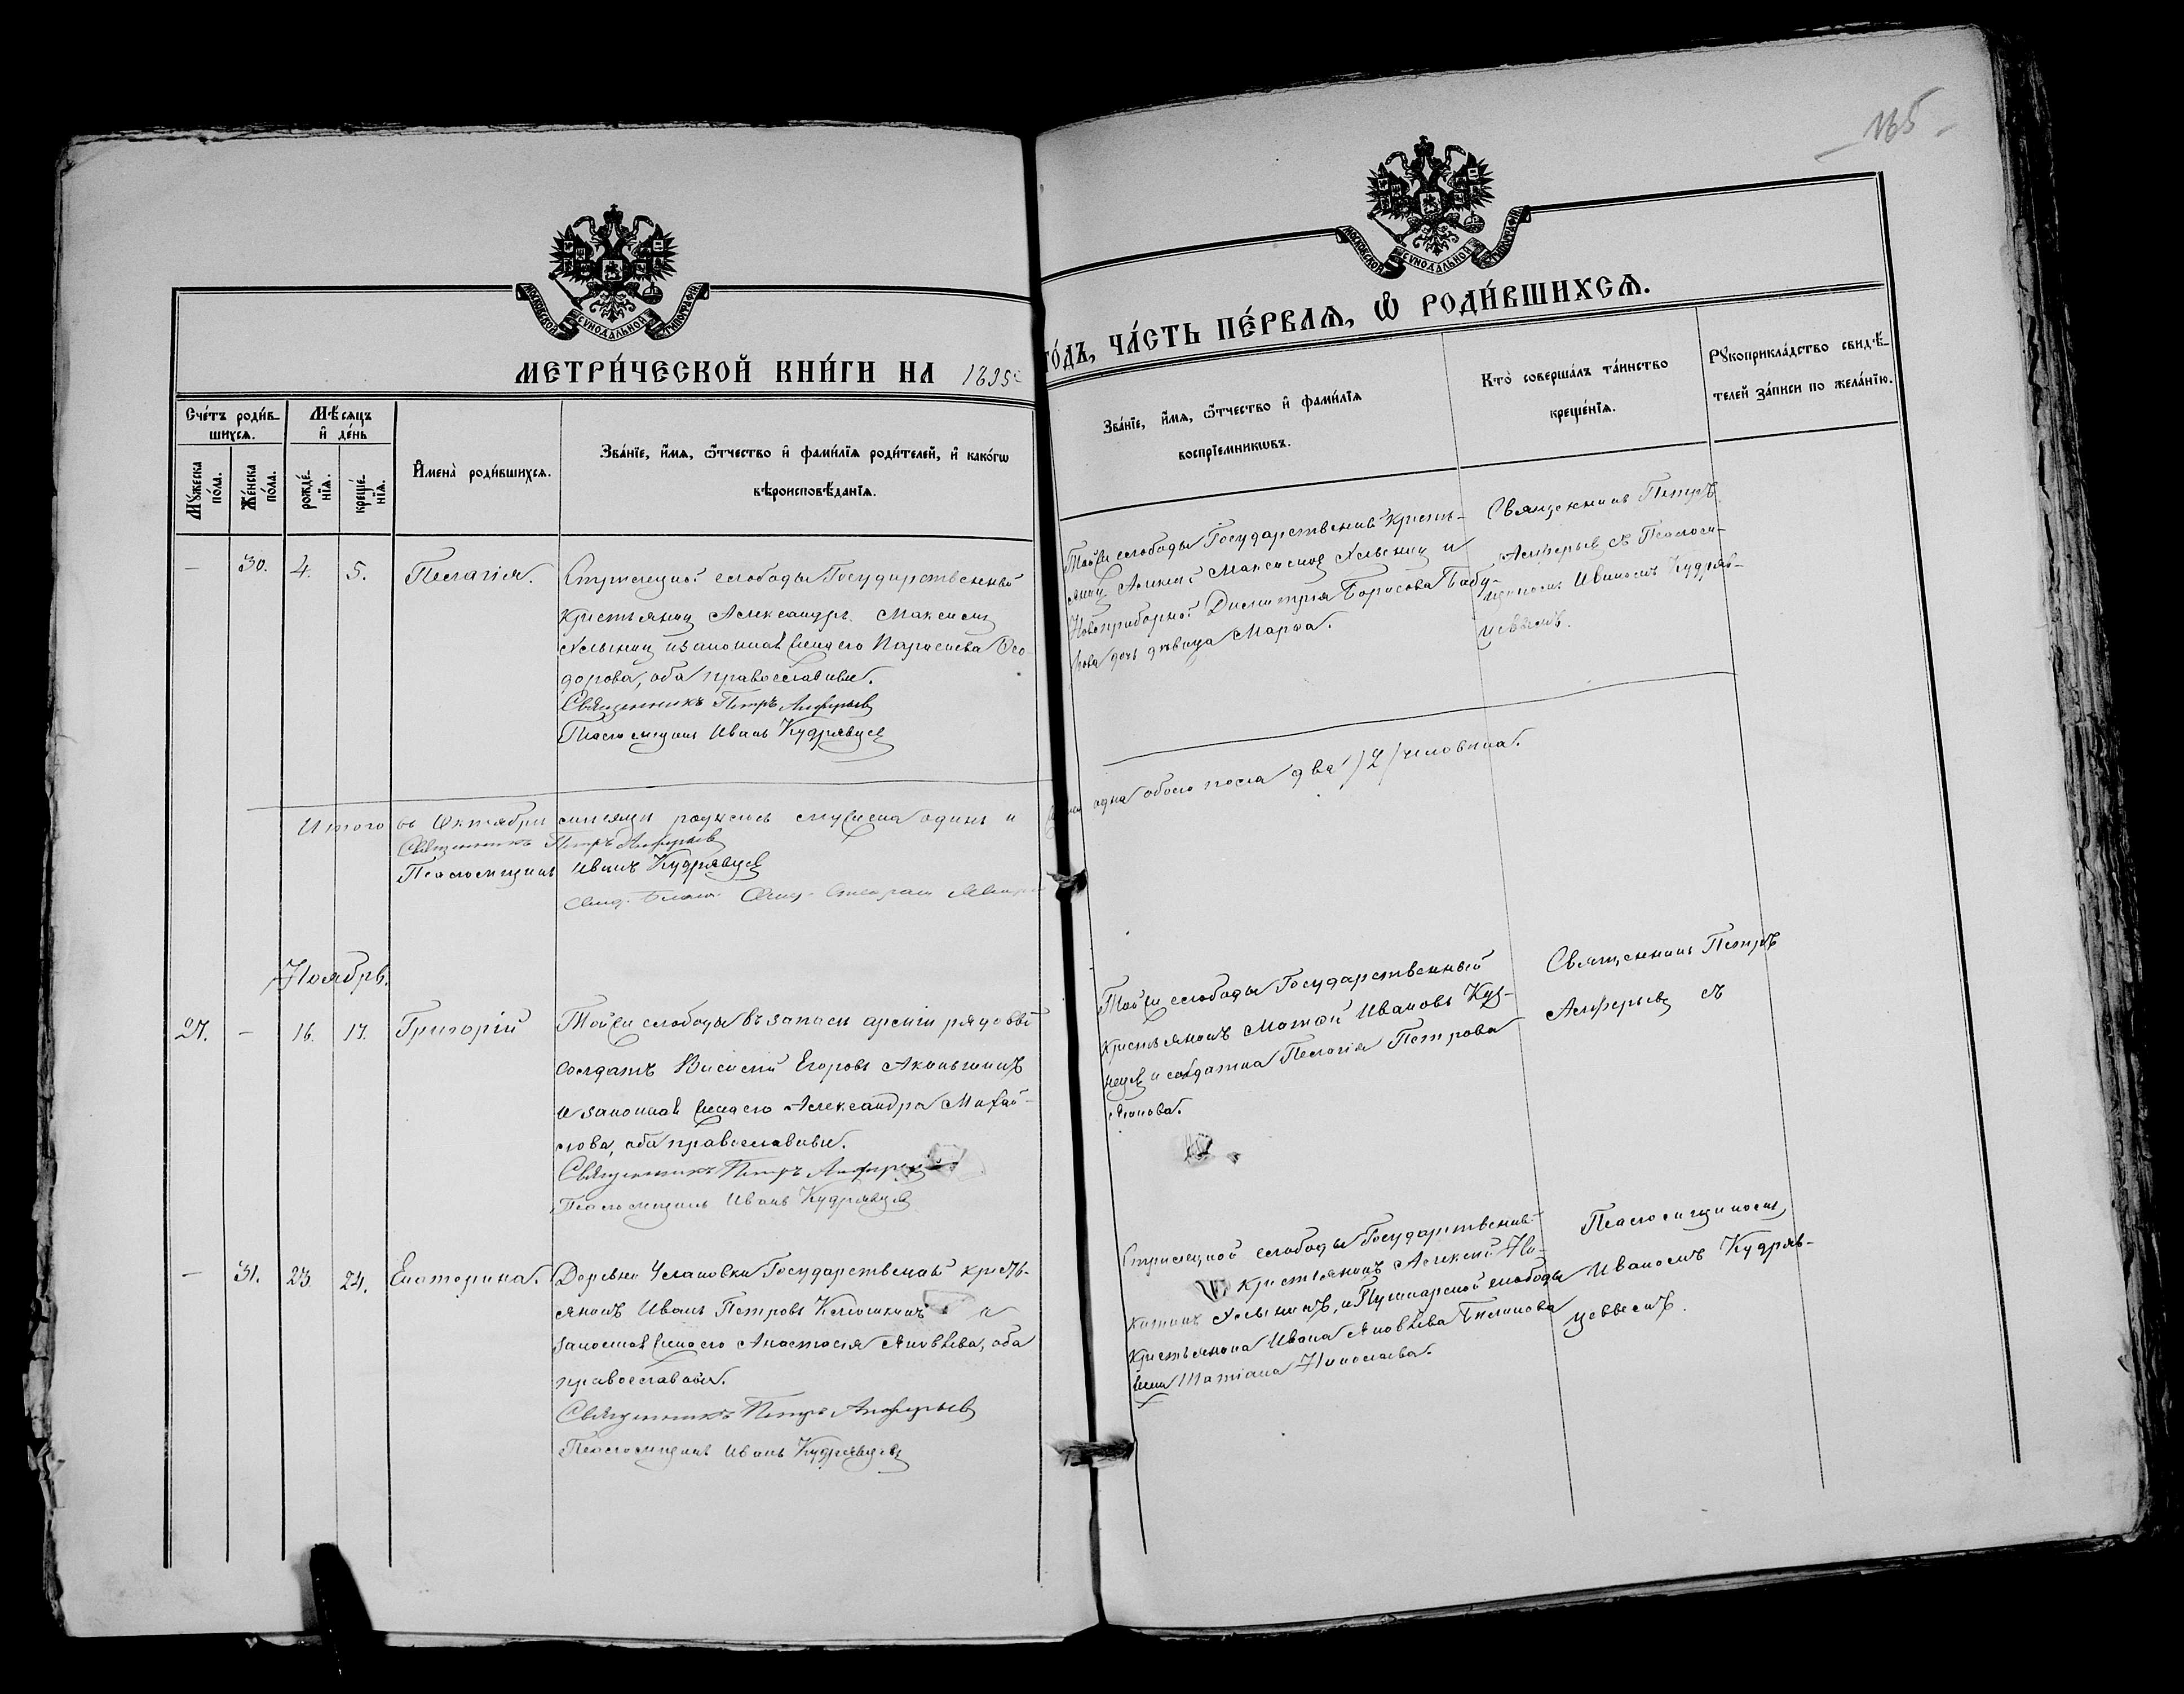 165
МОСКОВСКОЙ СУНОДАЛЬНОЙ ТИПОГРАФИИ
МОСКОВСКОЙ СУНОДАЛЬНОЙ ТИПОГРАФИИ
МЕТРИ́ЧЕСКОЙ КНИ́ГИ НА 1895
ГО́ДЪ, ЧА́СТЬ ПЕ́РВАѦ, Ѡ҆ РОДИ́ВШИХСѦ.
Сче́тъ роди́в-
шихсѧ.
Мꙋжеска по́ла.
Же́нска по́ла.
Мѣ́сѧцъ
и҆ де́нь
рожде́-
нїѧ.
креще́-
нїѧ.
И҆мена̀ роди́вшихсѧ.
Зва́нїе, и҆́мѧ, ѻ҆́тчество и҆ фами́лїѧ роди́телей, и҆ како́гѡ
вѣроисповѣ́данїѧ.
Зва́нїе, и҆́мѧ, ѻ҆́тчество и҆ фами́лїѧ
воспрїемникѡвъ.
Кто̀ соверша́лъ та́инство
креще́нїѧ.
Рꙋкоприкла́дство свидѣ́-
телей за́писи по жела́нїю.
— 30. 4. 5. Пелагія.
Стрѣлецкой слободы Государственный
крестьянинъ Александръ Максимовъ
и законная жена его Параскева Ѳео-
дорова, оба православные.
Священникъ Петръ Алферьевъ
Псаломщикъ Иванъ Кудрявцевъ
Той же слободы Государственный кресть-
янинъ Алексѣй Максимовъ и
Новоприборной Димитрія Борисова Бабу-
дочь дѣвица Марѳа.
Священникъ Петръ
Алферьевъ съ Псаломщи-
комъ Иваномъ Кудряв-
цевымъ.
Итого въ Октябрѣ мѣсяцѣ родилось мужеска одинъ и
одна обоего пола два /2/ человѣка.
Священникъ Петръ Алферьевъ
Псаломщикъ Иванъ Кудрявцевъ
Ноябрь.
27. — 16. 17. Григорій
Той же слободы въ запасѣ арміи рядовой
солдатъ Василій Егоровъ
и законная жена его Александра Михай-
лова, оба православные.
Священникъ Петръ Алферьевъ
Псаломщикъ Иванъ Кудрявцевъ
Той же слободы Государственный
крестьянинъ Матѳей Ивановъ Куз-
нецовъ и солдатка Пелагія Петрова
Священникъ Петръ
Алферьевъ съ
— 31. 23 24. Екатерина.
Деревни Государственный кресть-
янинъ Иванъ Петровъ и
законная жена его Анастасія Яковлева, оба
православные.
Священникъ Петръ Алферьевъ
Псаломщикъ Иванъ Кудрявцевъ
Стрѣлецкой слободы Государствен-
крестьянинъ Алексѣй Ни-
и Пушкарской слободы
крестьянина Ивана Яковлева
жена Татіана Николаева.
Псаломщикомъ
Иваномъ Кудряв-
цевымъ.